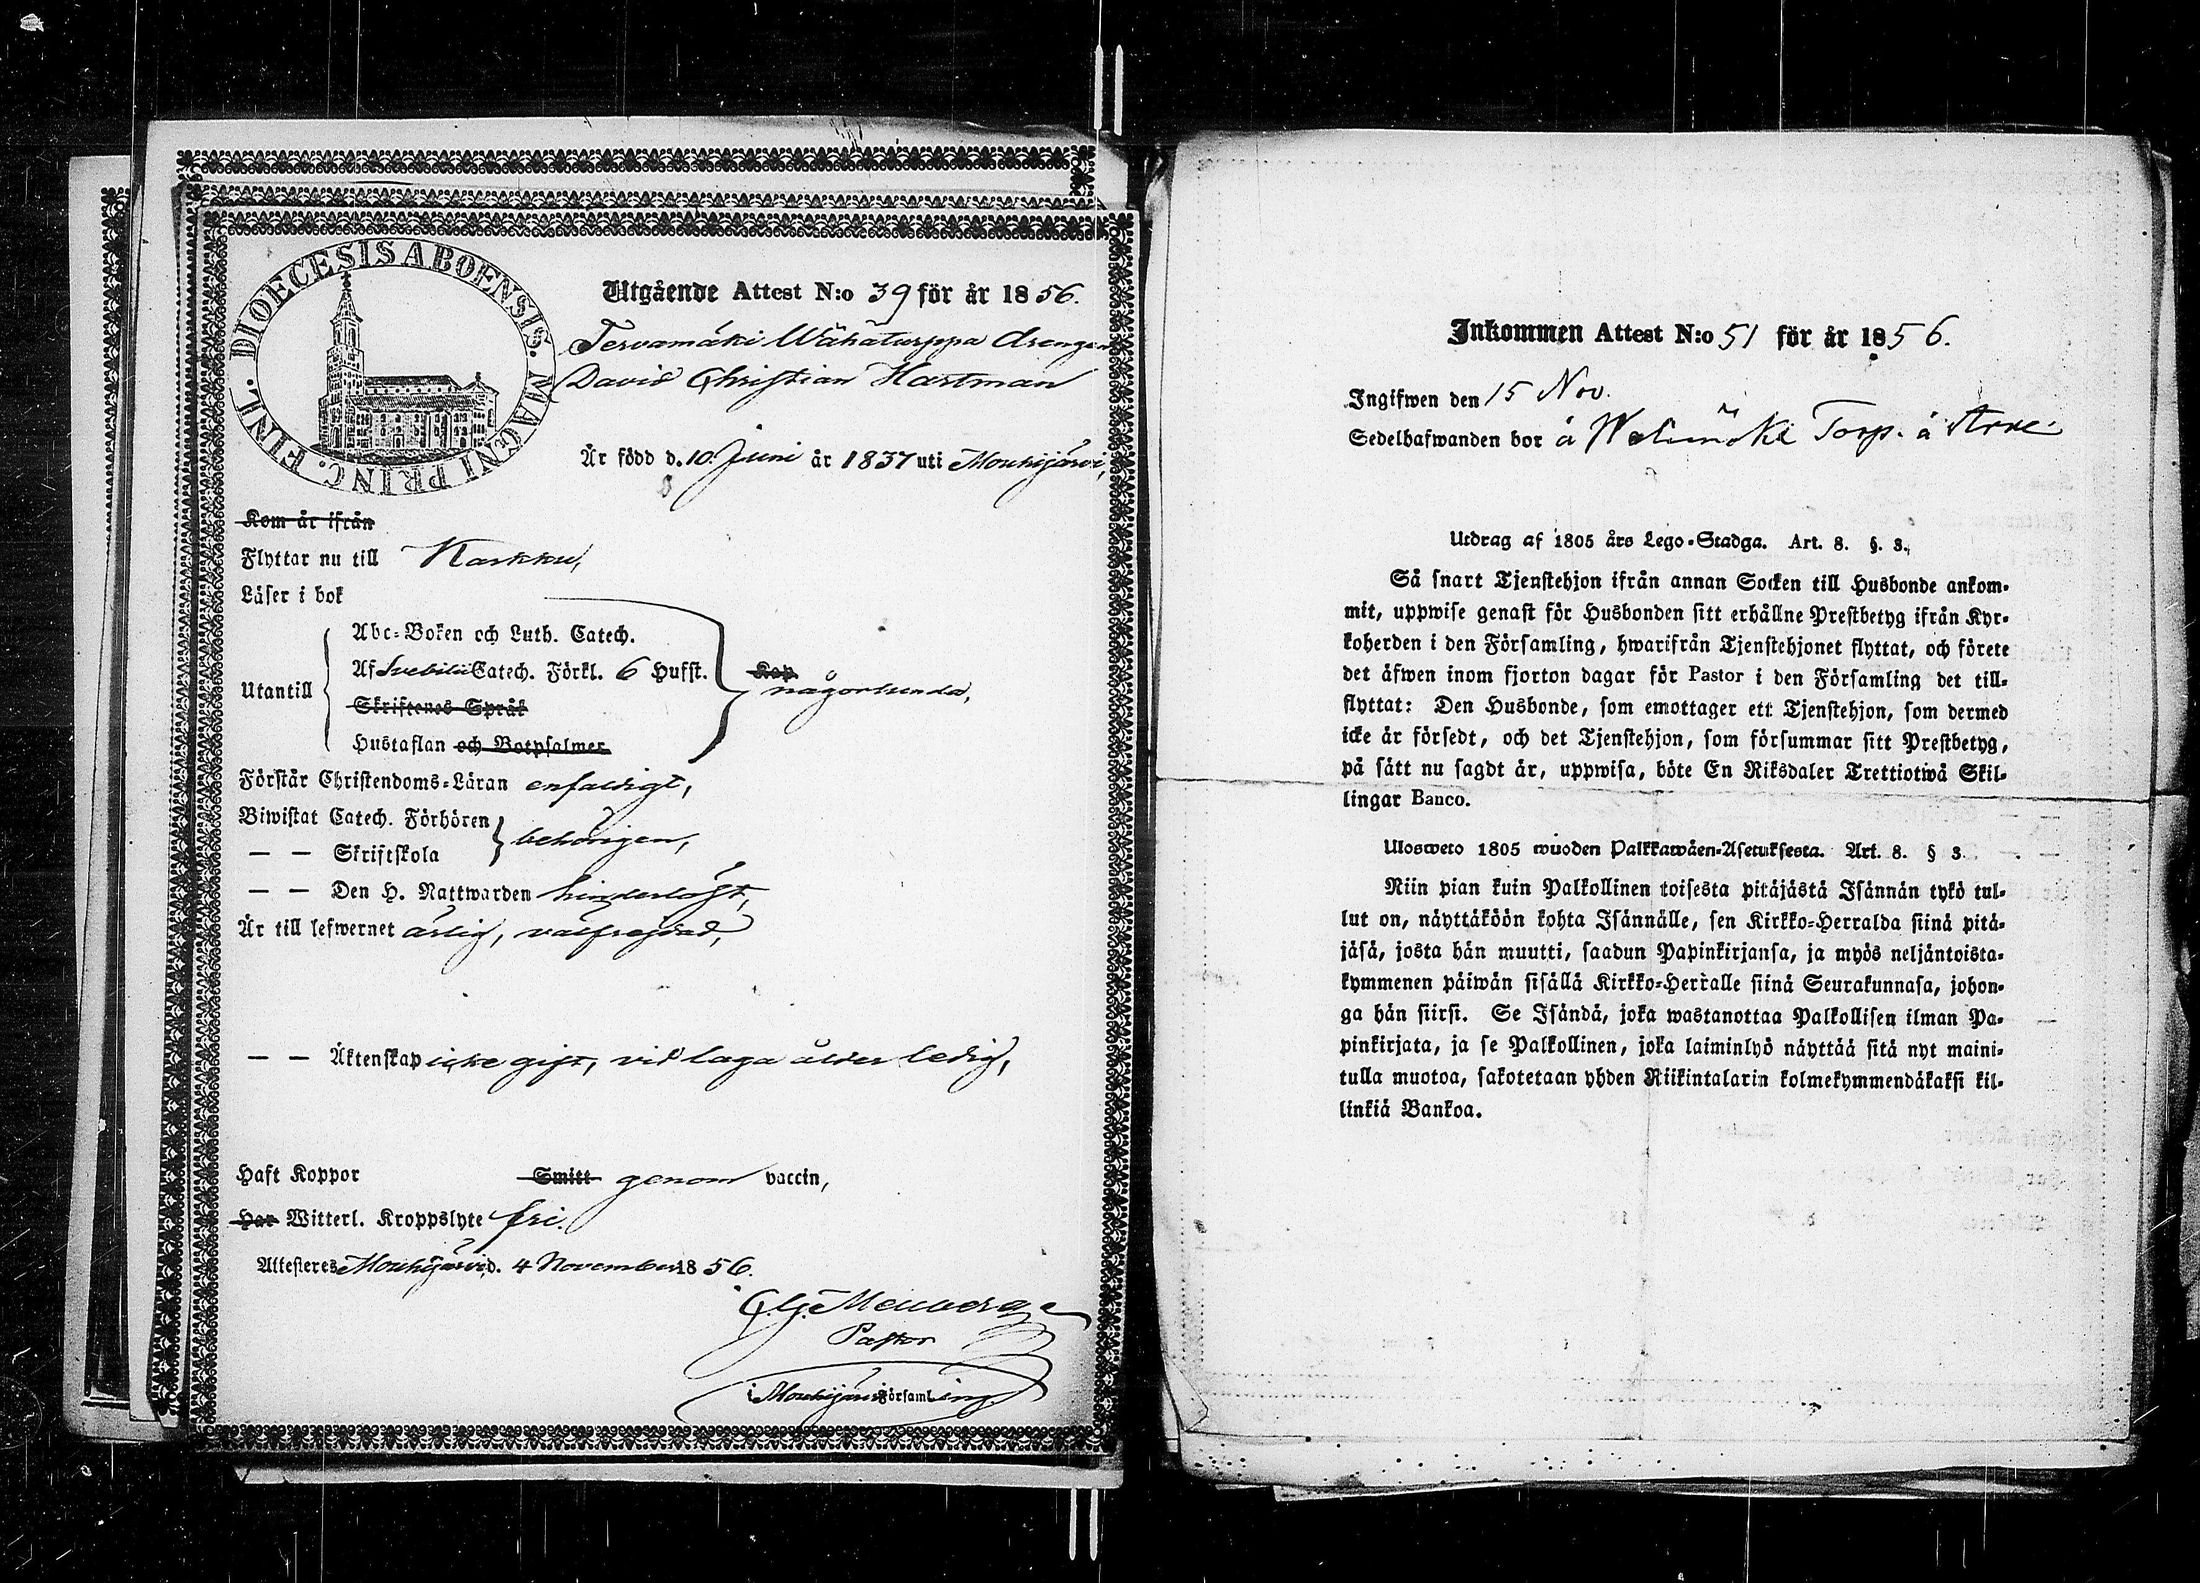 DIOECESIS ABOENSIS. MAGNI PRINC. FINL.
Utgående Attest N:o 39 för år 1856.
Tervamäki Wähäturppa Drengen
David Christian Hartman
Är född d. 10. Juni år 1837 uti Mouhijärvi,
Kom år ifrån
Flyttar nu till Karkku,
Läser i bok
Abc-Boken och Luth. Catech.
Af Svebilii Catech. Förkl. 6 Hufst.
Utantill
Kap
någorlunda,
Skriftenes Språk
Hustaflan och Botpsalmer
Förstår Christendoms-Läran enfaldigt,
Biwistat Catech. Förhören
behörigen,
— — Skriftskola
— — Den H. Nattwarden hinderlöst,
Är till lefwernet ärlig, välfrejdad,
— — Äktenskap icke gift, vid laga ålder ledig,
Haft Koppor Smitt genom vaccin,
Har Witterl. Kroppslyte fri.
Attesteres Mouhijärvi d. 4 November 1856.
Pastor
i Mouhijärvi Församling.
Inkommen Attest N:o 51 för år 1856.
Ingifwen den 15 Nov.
Sedelhafwanden bor å Torp. å
Utdrag af 1805 års Lego-Stadga. Art. 8. §. 3.
Så snart Tjenstehjon ifrån annan Socken till Husbonde ankom-
mit, uppwise genast för Husbonden sitt erhållne Prestbetyg ifrån Kyr-
koherden i den Församling, hwarifrån Tjenstehjonet flyttat, och förete
det äfwen inom fjorton dagar för Pastor i den Församling det till-
flyttat: Den Husbonde, som emottager ett Tjenstehjon, som dermed
icke är försedt, och det Tjenstehjon, som försummar sitt Prestbetyg,
på sätt nu sagdt är, uppwisa, böte En Riksdaler Trettiotwå Skil-
lingar Banco.
Ulosweto 1805 wuoden Palkkawäen-Asetuksesta. Art. 8. § 3.
Niin pian kuin Palkollinen toisesta pitäjästä Isännän tykö tul-
lut on, näyttäköön kohta Isännälle, sen Kirkko-Herralda siinä pitä-
jäsä, josta hän muutti, saadun Papinkirjansa, ja myös neljäntoista-
kymmenen päiwän sisällä Kirkko-Herralle siinä Seurakunnasa, johon-
ga hän siirsi. Se Isändä, joka wastanottaa Palkollisen ilman Pa-
pinkirjata, ja se Palkollinen, joka laiminlyö näyttää sitä nyt maini-
tulla muotoa, sakotetaan yhden Riikintalarin kolmekymmendäkaksi kil-
linkiä Bankoa.